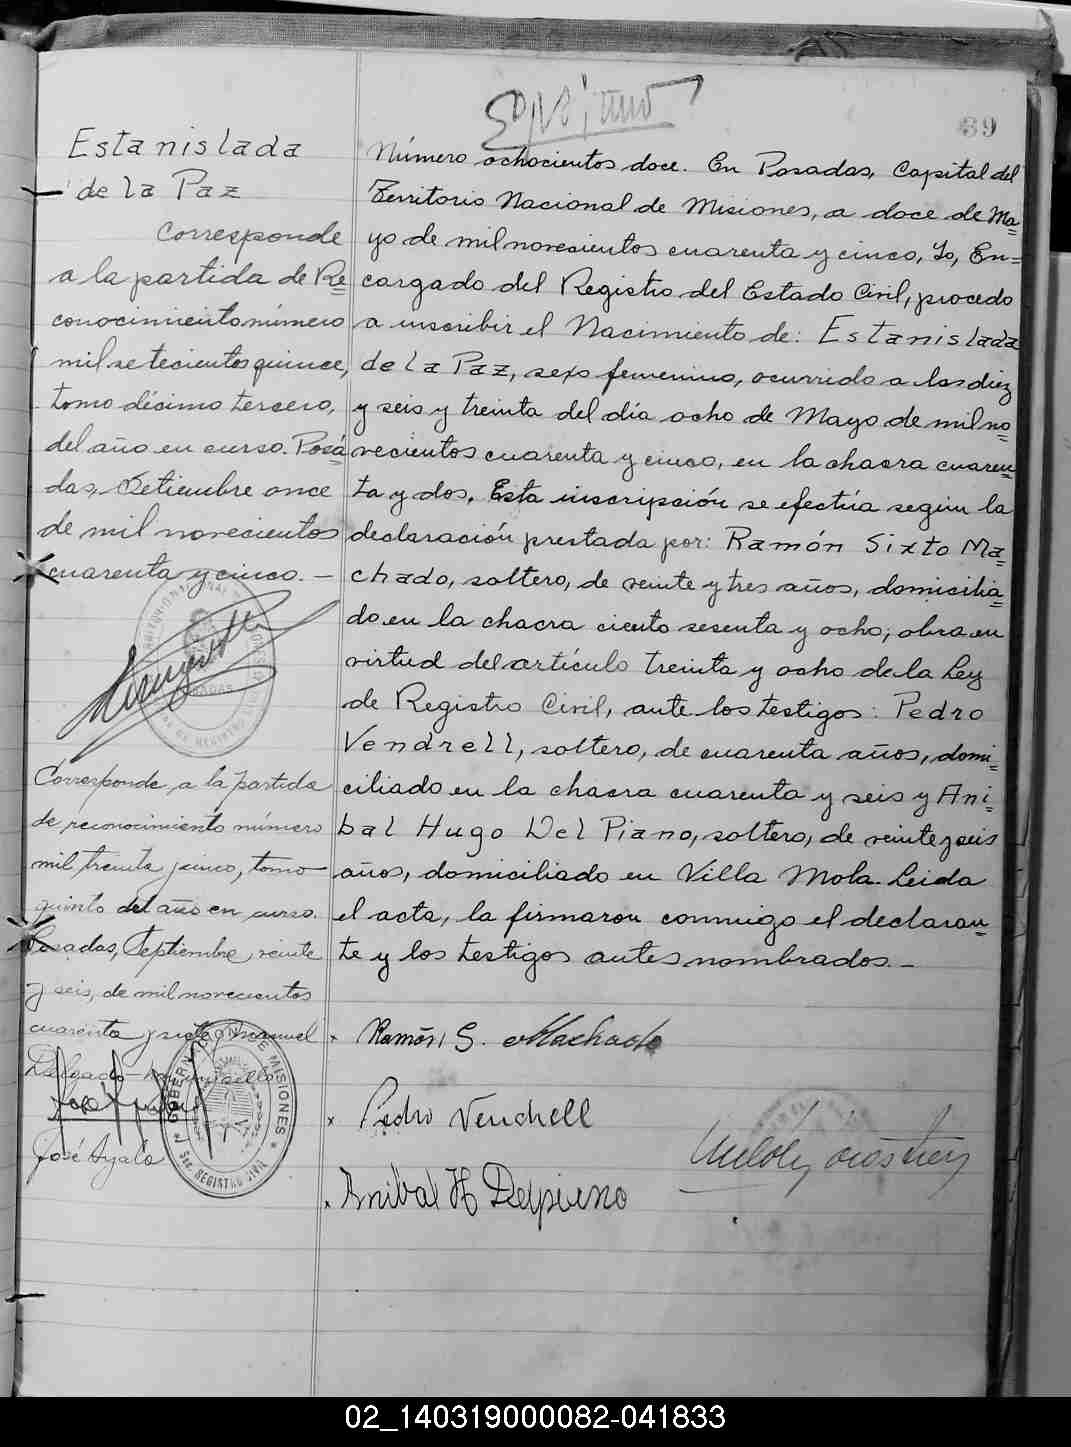 39
Estanislada
de la Paz
Corresponde
a la partida de Re=
conocimiento número
mil setecientos quince,
tomo décimo tercero,
del año en curso. Posa=
das, Setiembre once
de mil novecientos
cuarenta y cinco. —
Corresponde a la partida
de reconocimiento número
mil treinta y cinco, tomo
quinto del año en curso.
Posadas, Septiembre veinte
y seis, de mil novecientos
cuarenta y siete, Manuel
Delgado
José Ayala
GOBERNACION DE MISIONES
Sec. REGISTRO CIVIL
Número ochocientos doce. En Posadas, Capital del
Territorio Nacional de Misiones, a doce de Ma=
yo de mil novecientos cuarenta y cinco, Yo, En=
cargado del Registro del Estado Civil, procedo
a inscribir el Nacimiento de: Estanislada
de la Paz, sexo femenino, ocurrido a las diez
y seis y treinta del día ocho de Mayo de mil no=
vecientos cuarenta y cinco, en la chacra cuaren=
ta y dos. Esta inscripción se efectúa según la
declaración prestada por: Ramón Sixto Ma=
chado, soltero, de veinte y tres años, domicilia=
do en la chacra ciento sesenta y ocho; obra en
virtud del artículo treinta y ocho de la Ley
de Registro Civil, ante los testigos: Pedro
Vendrell, soltero, de cuarenta años, domi=
ciliado en la chacra cuarenta y seis y Aní=
bal Hugo Del Piano, soltero, de veinte y seis
años, domiciliado en Villa Mola. Leida
el acta, la firmaron conmigo el declaran=
te y los testigos antes nombrados. —
Ramón S. Machado
Pedro Vendrell
Anibal H Delpiano
02_140319000082-041833